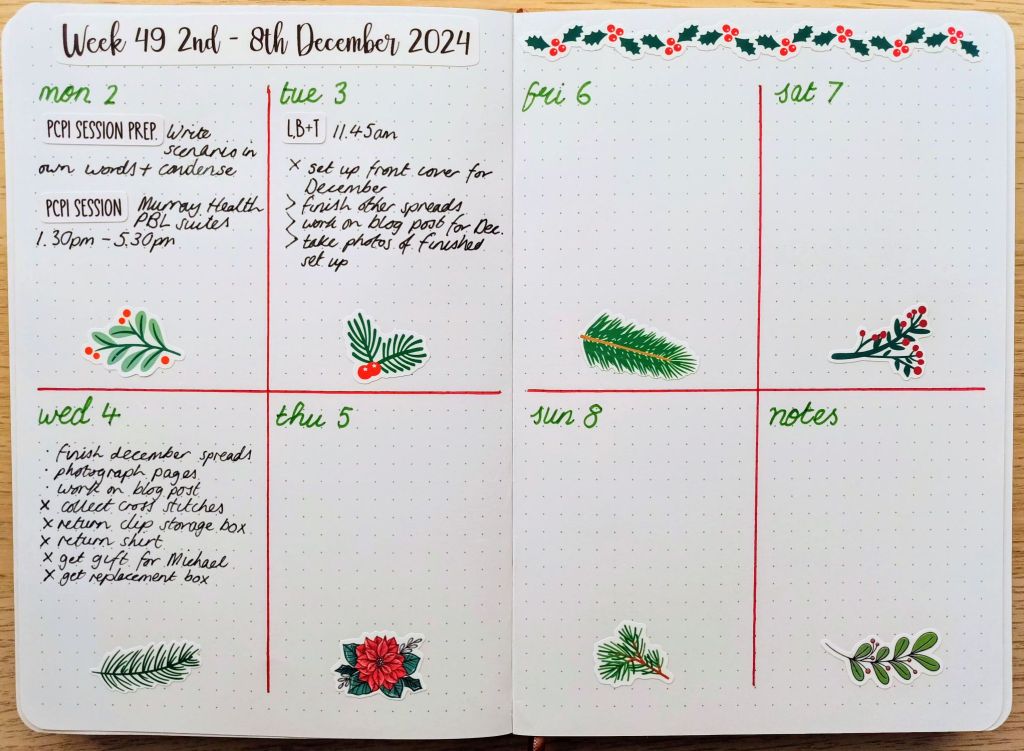 Week 49 2nd - 8th December 2024
mon 2
PCPI SESSION PREP. Write
scenario in
own words + condense
PCPI SESSION Murray Health
PBL suites
1.30pm - 5.30pm
tue 3
LB+T 11.45am
x set up front cover for
December
> finish other spreads
> work on blog post for Dec.
> take photos of finished
set up
wed 4
· finish december spreads
· photograph pages
· work on blog post
x collect cross stitches
x return clip storage box
x return shirt
x get gift for Michael
x get replacement box
thu 5
fri 6
sat 7
sun 8
notes